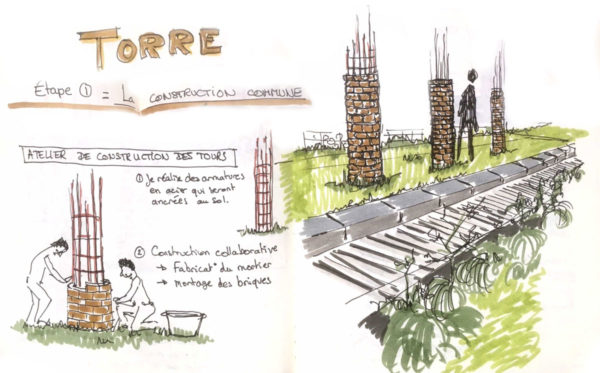 TORRE
Étape ① = La CONSTRUCTION COMMUNE
ATELIER DE CONSTRUCTION DES TOURS
① Je réalise des armatures
en acier qui seront
ancrées au sol.
② Construction collaborative
→ Fabricat° du mortier
→ montage des briques